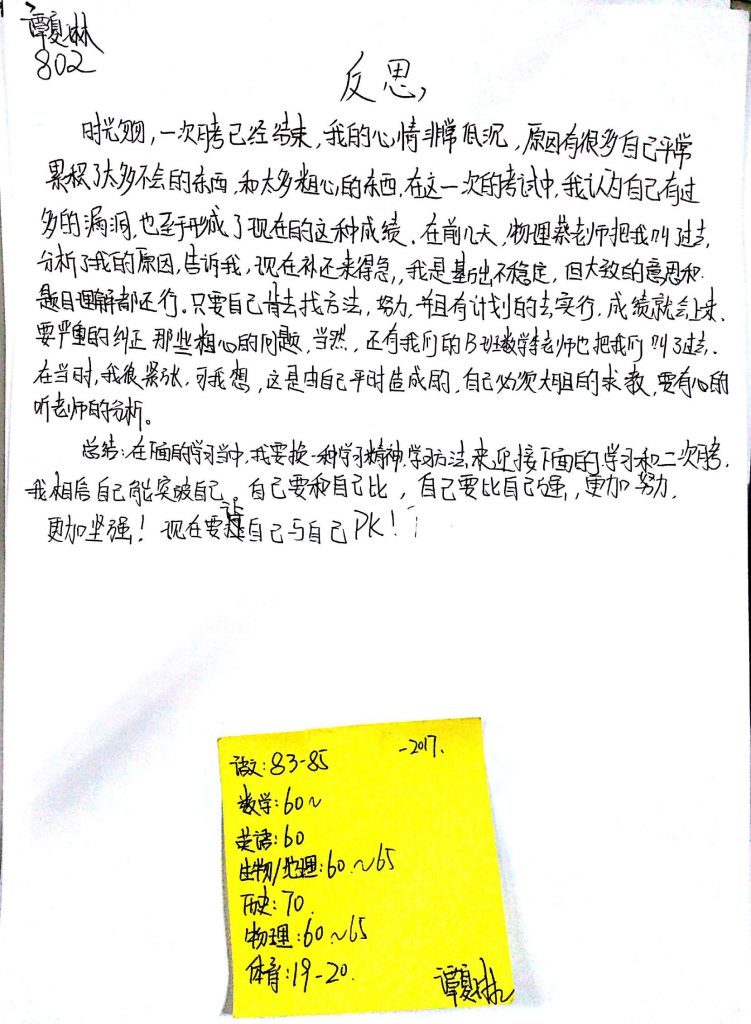 谭夏琳
802
反思
时光匆匆,一次月考已经结束,我的心情非常低沉,原因有很多自己平常
累积了太多不会的东西,和太多粗心的东西,在这一次的考试中,我认为自己有过
多的漏洞,也至于形成了现在的这种成绩。在前几天,物理蔡老师把我叫了过去,
分析了我的原因,告诉我,现在补还来得急,我是基础不稳定,但大致的意思和
题目理解都还行。只要自己肯去找方法,努力,并且有计划的去实行,成绩就会上来。
要严重的纠正那些粗心的问题,当然,还有我们的B班数学李老师也把我们叫了过去。
在当时,我很紧张,可我想,这是由自己平时造成的,自己必须大胆的求教,要有心的
听老师的分析。
总结:在下面的学习当中,我要换一种学习精神,学习方法,来迎接下面的学习和二次月考。
我相信自己能突破自己。自己要和自己比,自己要比自己强,更加努力,
更加坚强!现在要让自己与自己PK!
-2017.
语文:83-85
数学:60~
英语:60
生物/地理:60~65
历史:70.
物理:60~65
体育:19-20.
谭夏琳